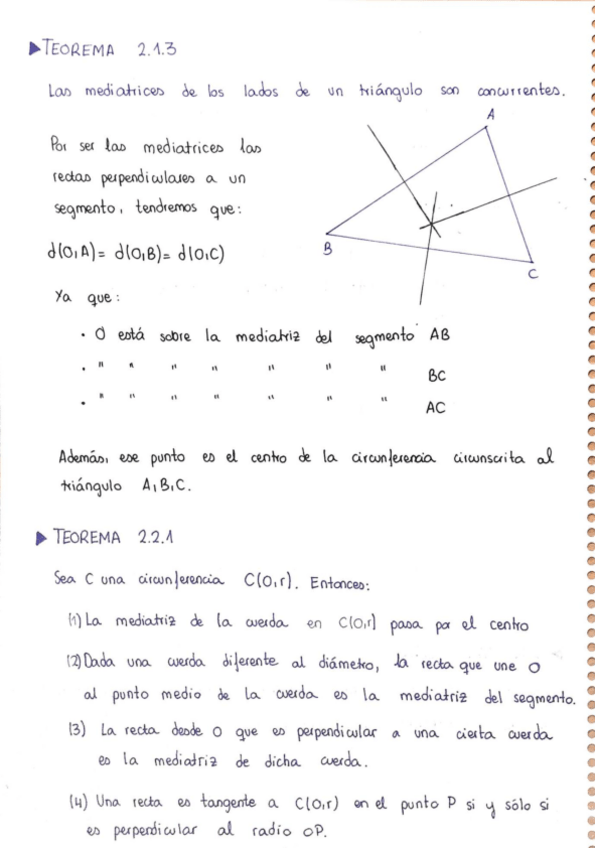 ▶TEOREMA 2.1.3
Las mediatrices de los lados de un triángulo son concurrentes.
A
Por ser las mediatrices las
rectas perpendiculares a un
segmento, tendremos que:
B
d(O,A)= d(O,B)= d(O,C)
C
Ya que:
· O está sobre la mediatriz del segmento AB
· " " " " " " " BC
· " " " " " " " AC
Además, ese punto es el centro de la circunferencia circunscrita al
triángulo A,B,C.
▶ TEOREMA 2.2.1
Sea C una circunferencia C(O,r). Entonces:
(1) La mediatriz de la cuerda en C(O,r] pasa por el centro
(2) Dada una cuerda diferente al diámetro, la recta que une O
al punto medio de la cuerda es la mediatriz del segmento.
(3) La recta desde O que es perpendicular a una cierta cuerda
es la mediadriz de dicha cuerda.
(4) Una recta es tangente a C(O,r) en el punto P si y sólo si
es perpendicular al radio OP.